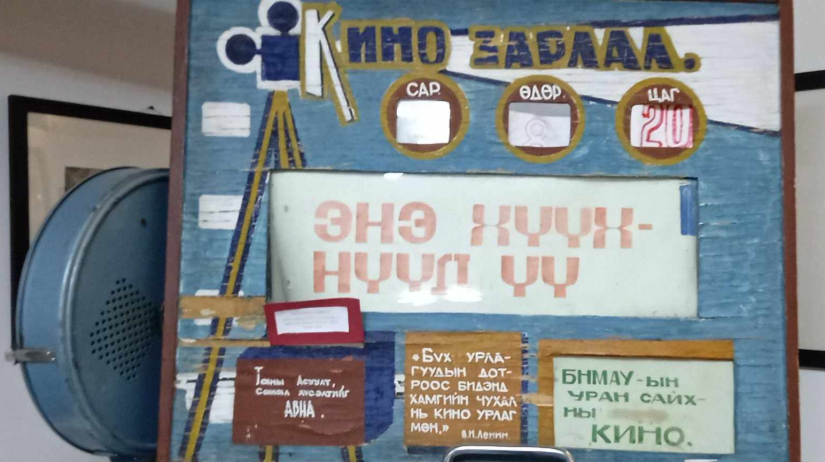 КИНО ЗАРЛАЛ.
САР. ӨДӨР. ЦАГ
8 20
ЭНЭ ХҮҮХ-
НҮҮД ҮҮ
Таны Асуулт,
Санал хүсэлтийг
АВНА.
«БҮХ УРЛА-
ГУУДЫН ДОТ-
РООС БИДЭНД
ХАМГИЙН ЧУХАЛ
НЬ КИНО УРЛАГ
МӨН.»
В.И.Ленин
БНМАУ-ЫН
УРАН САЙХ-
НЫ
КИНО.